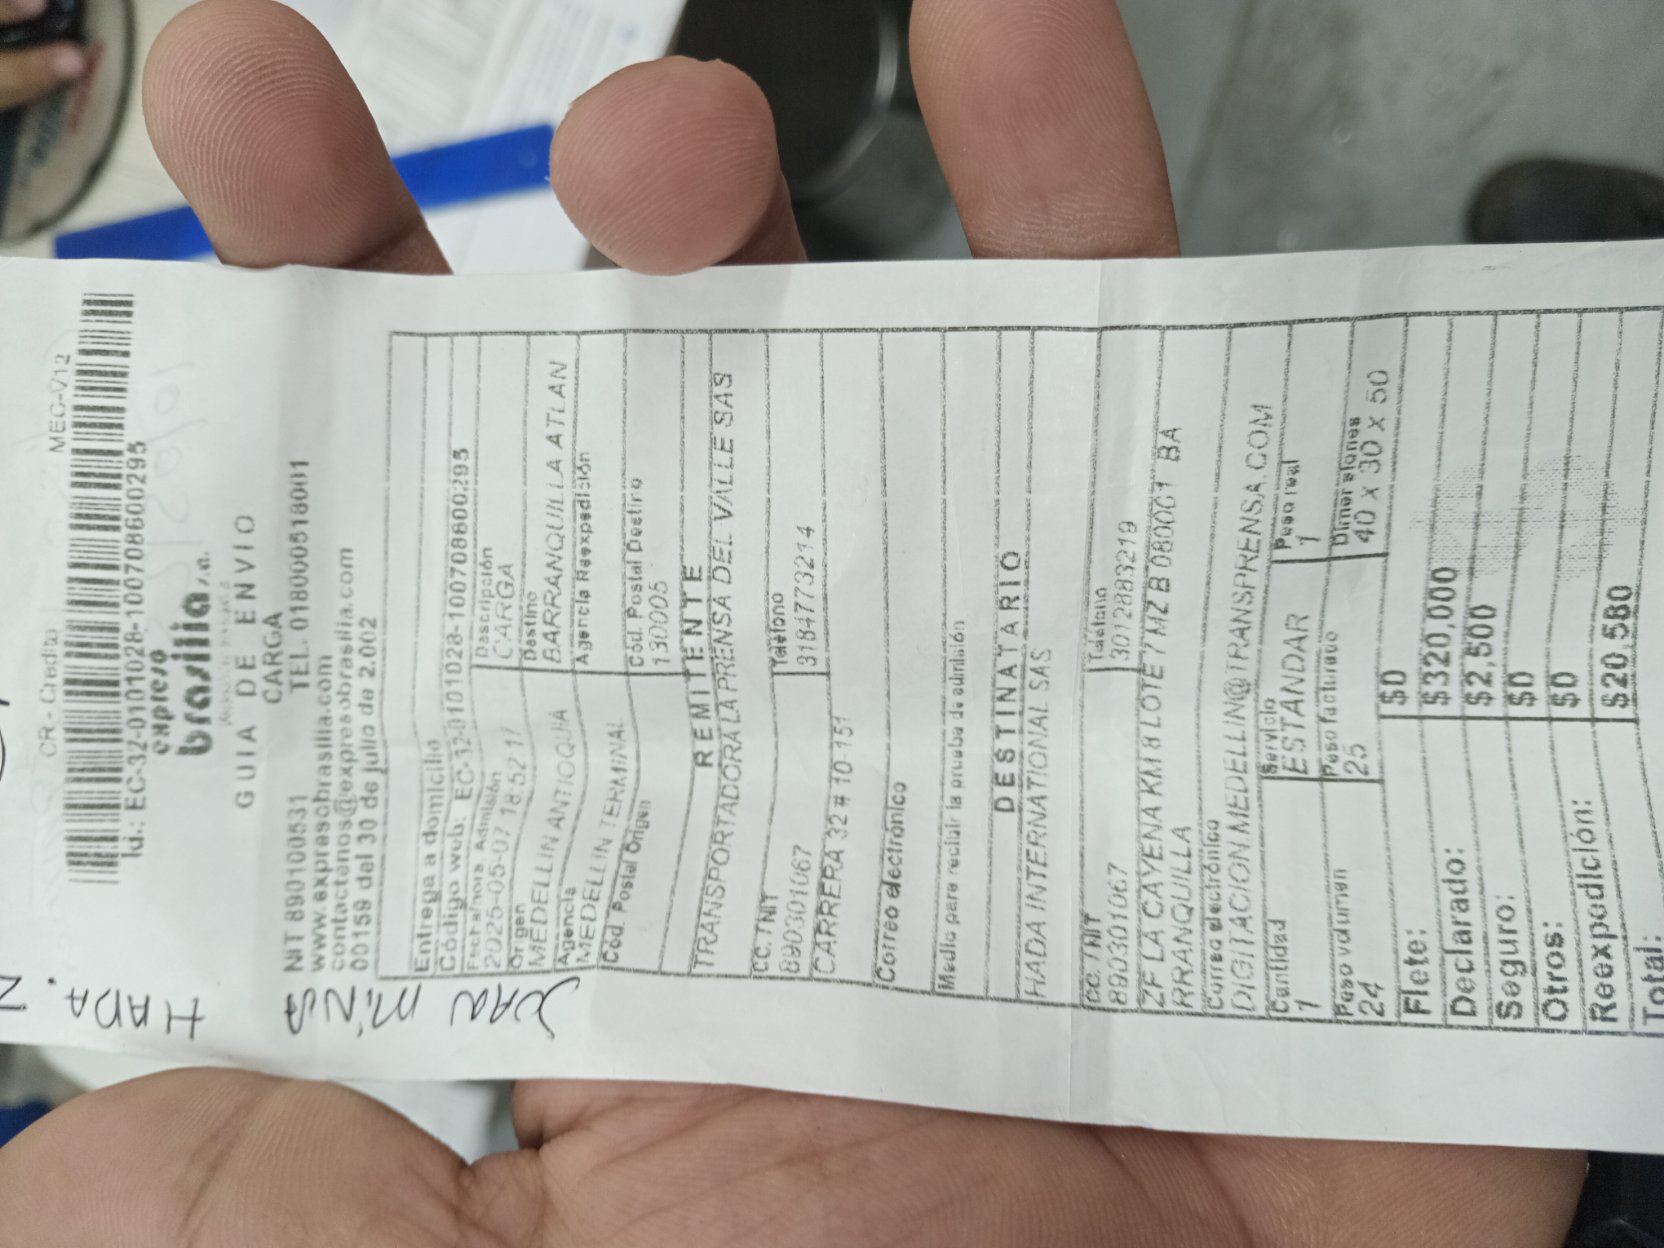 CR - Credito MEC-V12
Id.: EC-32-0101028-1007086002​95
expreso
brasilia s.a.
GUIA DE ENVIO
CARGA
NIT 890100531 TEL. 018000518001
www.expresobrasilia.com
contactenos@expresobrasilia.com
00159 del 30 de julio de 2.002
Entrega a domicilio
Código web: EC-32-0101028-100708600295
Fecha/hora Admisión Descripción
2025-05-07 18:52:17 CARGA
Origen Destino
MEDELLIN ANTIOQUIA BARRANQUILLA ATLAN
Agencia Agencia Reexpedición
MEDELLIN TERMINAL
Cód. Postal Origen Cód. Postal Destino
130005
REMITENTE
TRANSPORTADORA LA PRENSA DEL VALLE SAS
CC. / NIT Teléfono
890301067 3184773214
CARRERA 32 # 10-151
Correo electrónico
Medio para recibir la prueba de admisión
DESTINATARIO
HADA INTERNATIONAL SAS
CC. / NIT Teléfono
890301067 3012883219
ZF LA CAYENA KM 8 LOTE 7 MZ B 080001 BA
RRANQUILLA
Correo electrónico
DIGITACION.MEDELLIN@TRANSPRENSA.COM
Cantidad Servicio Peso real
1 ESTANDAR 1
Peso volumen Peso facturado Dimensiones
24 25 40 X 30 X 50
Flete: $0
Declarado: $320,000
Seguro: $2,500
Otros: $0
Reexpedición: $0
Total: $20,580
HADA.